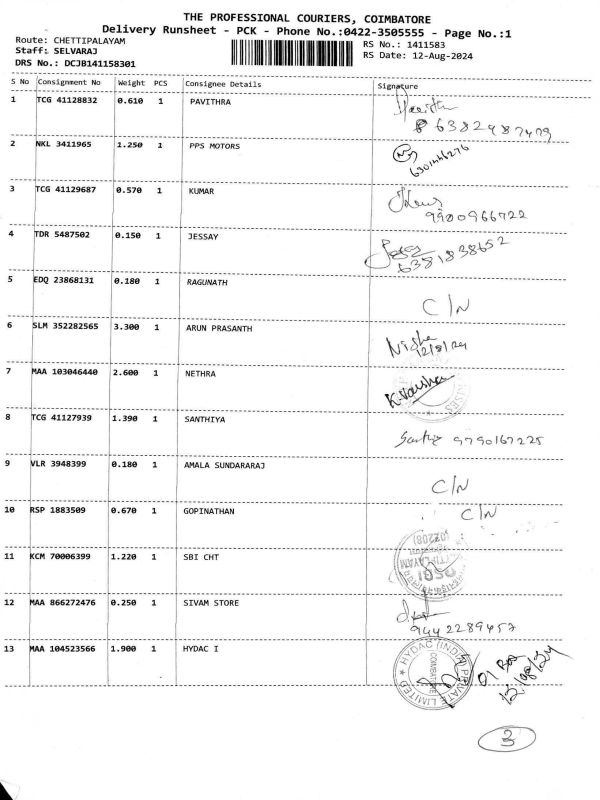 THE PROFESSIONAL COURIERS, COIMBATORE
Delivery Runsheet - PCK - Phone No.:0422-3505555 - Page No.:1
Route: CHETTIPALAYAM
RS No.: 1411583
Staff: SELVARAJ
RS Date: 12-Aug-2024
DRS No.: DCJB141158301
S No Consignment No Weight PCS Consignee Details Signature
1 TCG 41128832 0.610 1 PAVITHRA
6382987479
2 NKL 3411965 1.250 1 PPS MOTORS
3 TCG 41129687 0.570 1 KUMAR
9900966722
4 TDR 5487502 0.150 1 JESSAY
6381838652
5 EDQ 23868131 0.180 1 RAGUNATH
C/N
6 SLM 352282565 3.300 1 ARUN PRASANTH
Nisha
12/8/24
7 MAA 103046440 2.600 1 NETHRA
K.Varsha
8 TCG 41127939 1.390 1 SANTHIYA
9790167225
9 VLR 3948399 0.180 1 AMALA SUNDARARAJ
C/N
10 RSP 1883509 0.670 1 GOPINATHAN C/N
11 KCM 70006399 1.220 1 SBI CHT
12 MAA 866272476 0.250 1 SIVAM STORE
9442289457
13 MAA 104523566 1.900 1 HYDAC I
HYDAC (INDIA) PRIVATE LIMITED
COIMBATORE
12/08/24
3